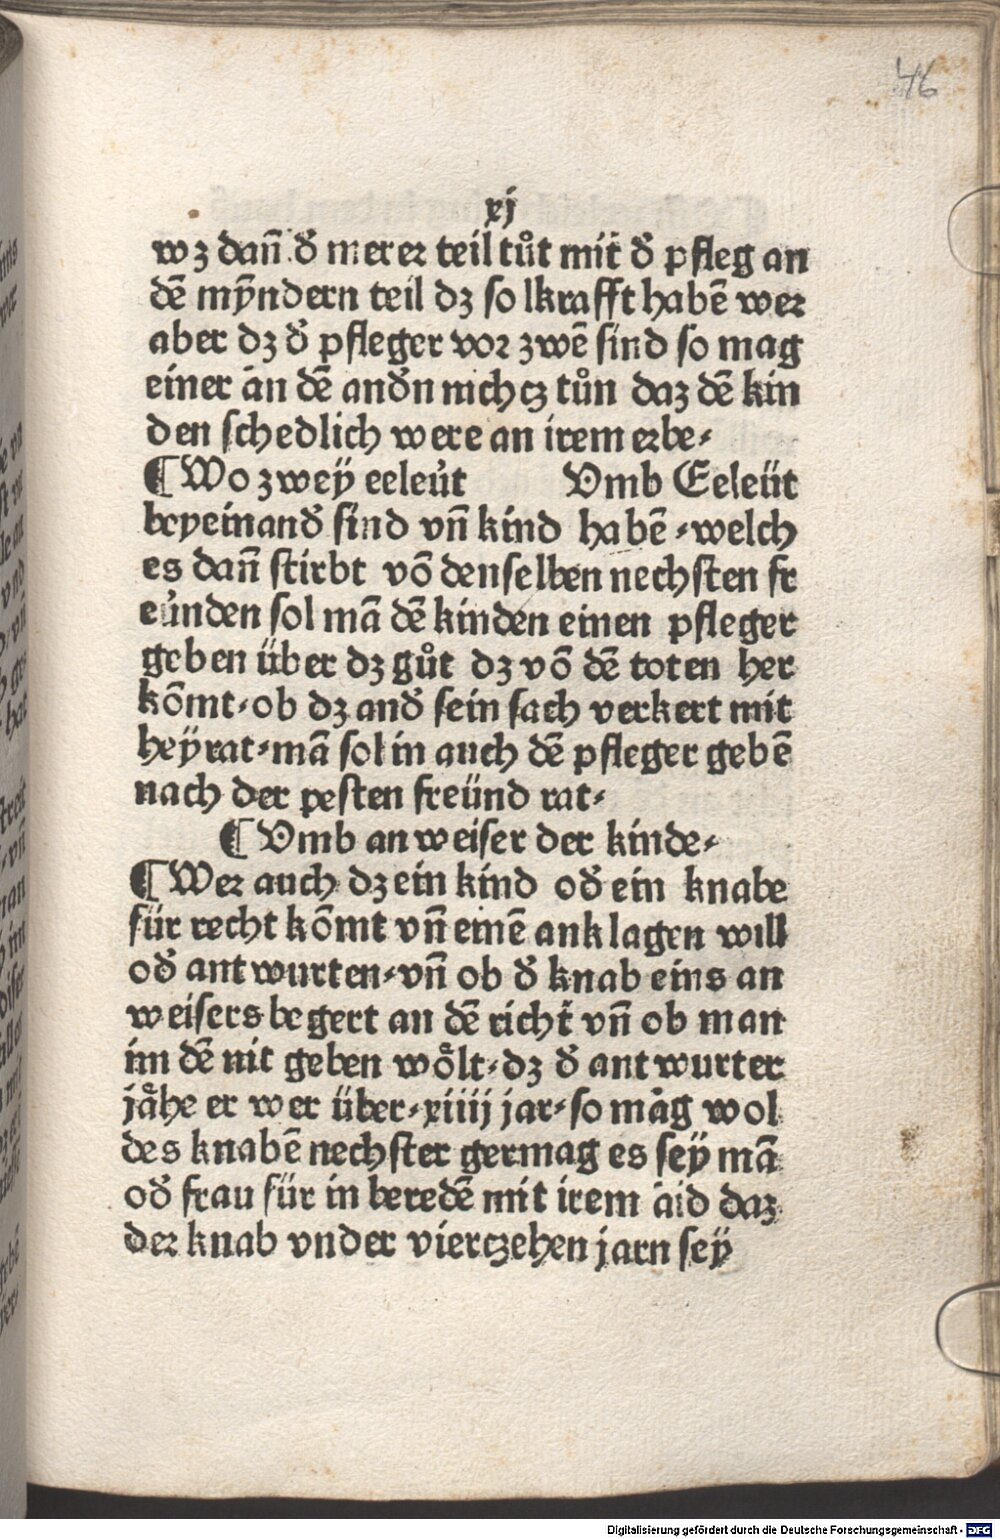 46
xj
wz dañ đ merer teil tůt mit đ pfleg an
dẽ mÿndern teil dz sol krafft habẽ wer
aber dz đ pfleger vor zwẽ sind so mag
einer an dẽ andn nichcz tůn daz dẽ kin
den schedlich were an irem erbe⸗
¶ Wo zwey eeleůt Vmb Eeleüt
beyeinanđ sind vñ kind habẽ⸗welch
es dañ stirbt võ denselben nechsten fr
eůnden sol mã dẽ kinden einen pfleger
geben über dz gůt dz võ dẽ toten her
kõmt⸗ob dz anđ sein sach verkert mit
heÿrat⸗mã sol in auch dẽ pfleger gebẽ
nach der pesten freünd rat⸗
¶ Vmb anweiser der kinde⸗
¶ Wer auch dz ein kind ođ ein knabe
für recht kõmt vñ einẽ anklagen will
ođ antwurten⸗vñ ob đ knab eins an
weisers begert an dẽ richt̃ vñ ob man
im dẽ nit geben woͤlt⸗dz đ antwurter
jaͤhe er wer über⸗xiiij jar⸗so mag wol
des knabẽ nechster germag es seÿ mã
ođ frau für in beredẽ mit irem aid daz
der knab vnder vierczehen jarn seÿ
Digitalisierung gefördert durch die Deutsche Forschungsgemeinschaft - DFG